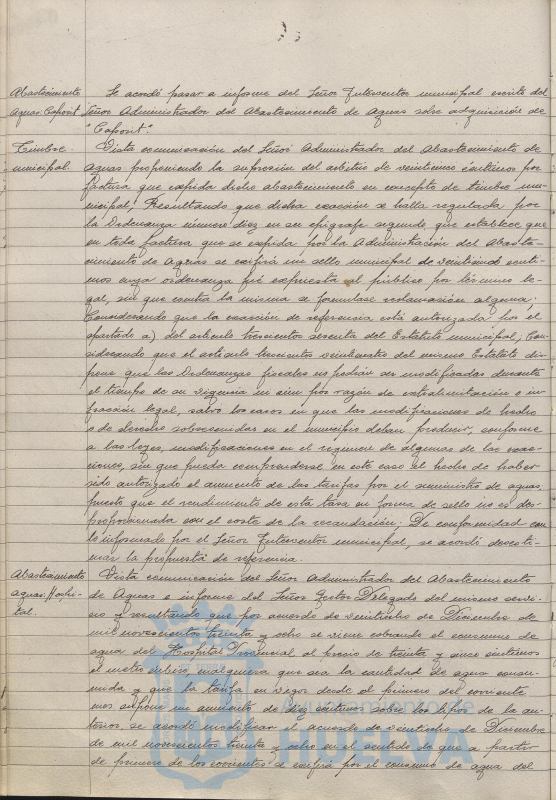 Abastecimiento
aguas: Caporit
Se acordó pasar a informe del Señor Interventor municipal escrito del
Señor Administrador del Abastecimiento de Aguas sobre adquisición de
"Caporit".
Timbre
municipal.
Vista comunicación del Señor Administrador del Abastecimiento de
Aguas proponiendo la supresión del arbitrio de veinticinco céntimos por
factura que expida dicho abastecimiento en concepto de timbre mu-
nicipal; Resultando que dicha exacción se halla regulada por
la Ordenanza número diez en su epígrafe segundo que establece que
en toda factura que se expida por la Administración del Abaste-
cimiento de Aguas se exigirá un sello municipal de veinticinco cénti-
mos cuya ordenanza fué expuesta al público por término le-
gal, sin que contra la misma se formulase reclamación alguna;
Considerando que la exacción de referencia está autorizada por el
apartado a) del artículo trescientos sesenta del Estatuto municipal; Con-
siderando que el artículo trescientos veinticuatro del mismo Estatuto dis-
pone que las Ordenanzas fiscales no podrán ser modificadas durante
el tiempo de su vigencia ni aún por razón de extralimitación e in-
fracción legal, salvo los casos en que las modificaciones de hecho
o de derecho sobrevenidas en el municipio deban producir, conforme
a las leyes, modificaciones en el régimen de algunas de las exac-
ciones, sin que pueda comprenderse en este caso el hecho de haber
sido autorizado el aumento de las tarifas por el suministro de aguas,
puesto que el rendimiento de esta tasa en forma de sello no es des-
proporcionada con el coste de la recaudación; De conformidad con
lo informado por el Señor Interventor municipal, se acordó desesti-
mar la propuesta de referencia.
Abastecimiento
aguas: Hospi-
tal.
Vista comunicación del Señor Administrador del Abastecimiento
de Aguas e informe del Señor Gestor Delegado del mismo servi-
cio y resultando que por acuerdo de veintiocho de Diciembre de
mil novecientos treinta y ocho se viene cobrando el consumo de
agua del Hospital Provincial al precio de treinta y cinco céntimos
el metro cúbico, cualquiera que sea la cantidad de agua consu-
mida y que la tarifa en vigor desde el primero del corriente
mes supone un aumento de diez céntimos sobre los tipos de la an-
terior, se acordó modificar el acuerdo de veintiocho de Diciembre
de mil novecientos treinta y ocho en el sentido de que a partir
de primero de los corrientes se exigirá por el consumo de agua del